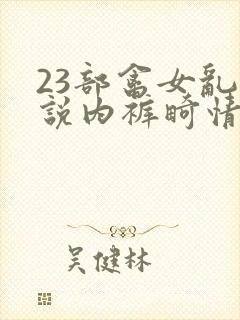 23部畜女亂
說内裤畸情
吴健林